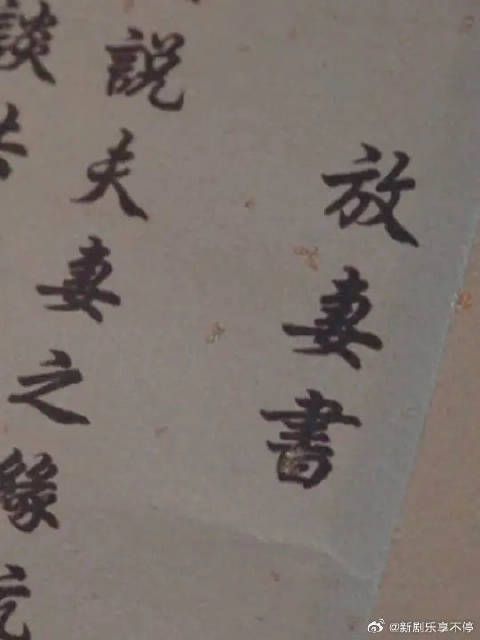 放妻書
説夫妻之緣
談共
@新剧乐享不停